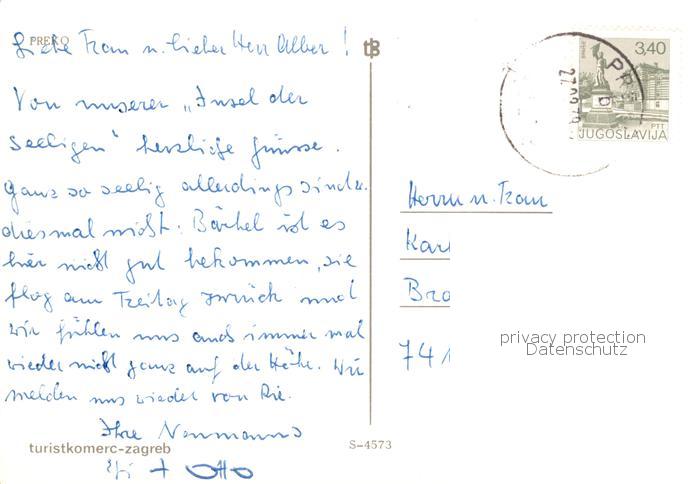 PREKO
Liebe Frau u. lieber Herr Alber!
Von unserer „Insel der
Seeligen" herzliche Grüsse.
Ganz so seelig allerdings sind
diesmal nicht. Bärbel ist es
hier nicht gut bekommen, sie
flog am Freitag zurück und
wir fühlen uns auch immer mal
wieder nicht ganz auf der Höhe. Wir
melden uns wieder von
Ihre Neumanns
+ Otto
turistkomerc-zagreb
S-4573
tB
3,40
PTT
JUGOSLAVIJA
Herrn u. Frau
Kar
Bra
741
privacy protection
Datenschutz